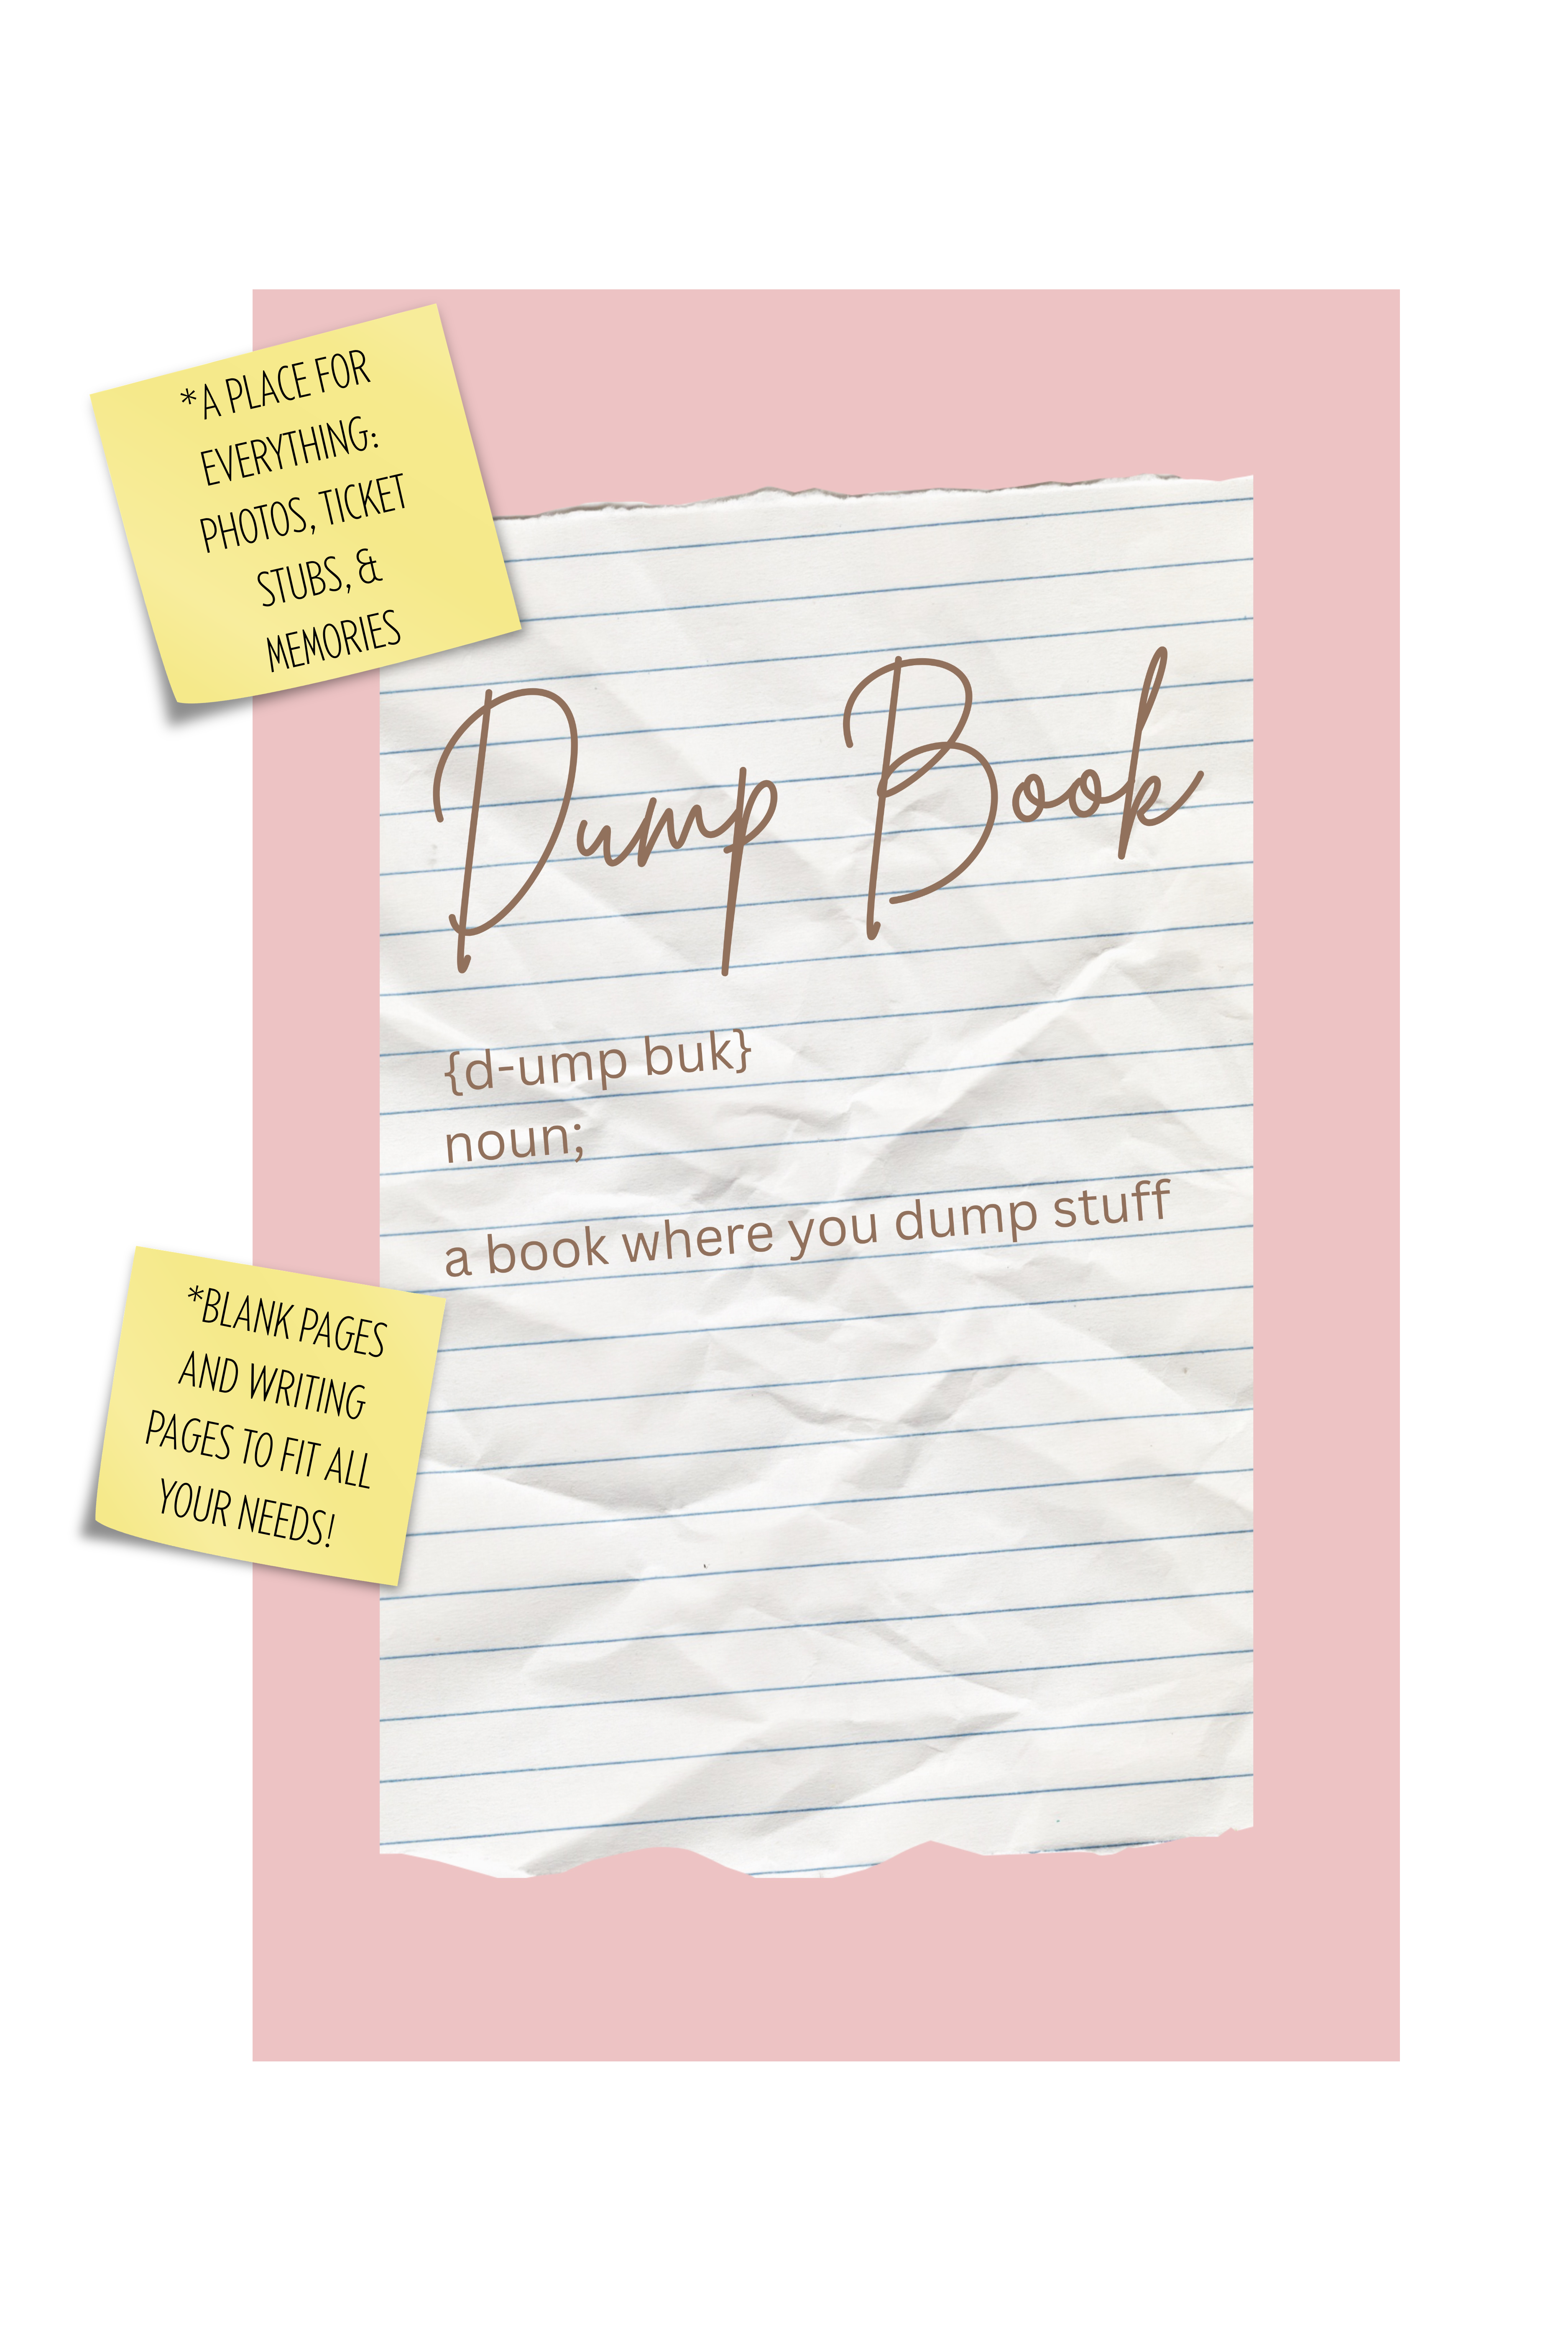 *A PLACE FOR
EVERYTHING:
PHOTOS, TICKET
STUBS, &
MEMORIES
Dump Book
{d-ump buk}
noun;
a book where you dump stuff
*BLANK PAGES
AND WRITING
PAGES TO FIT ALL
YOUR NEEDS!